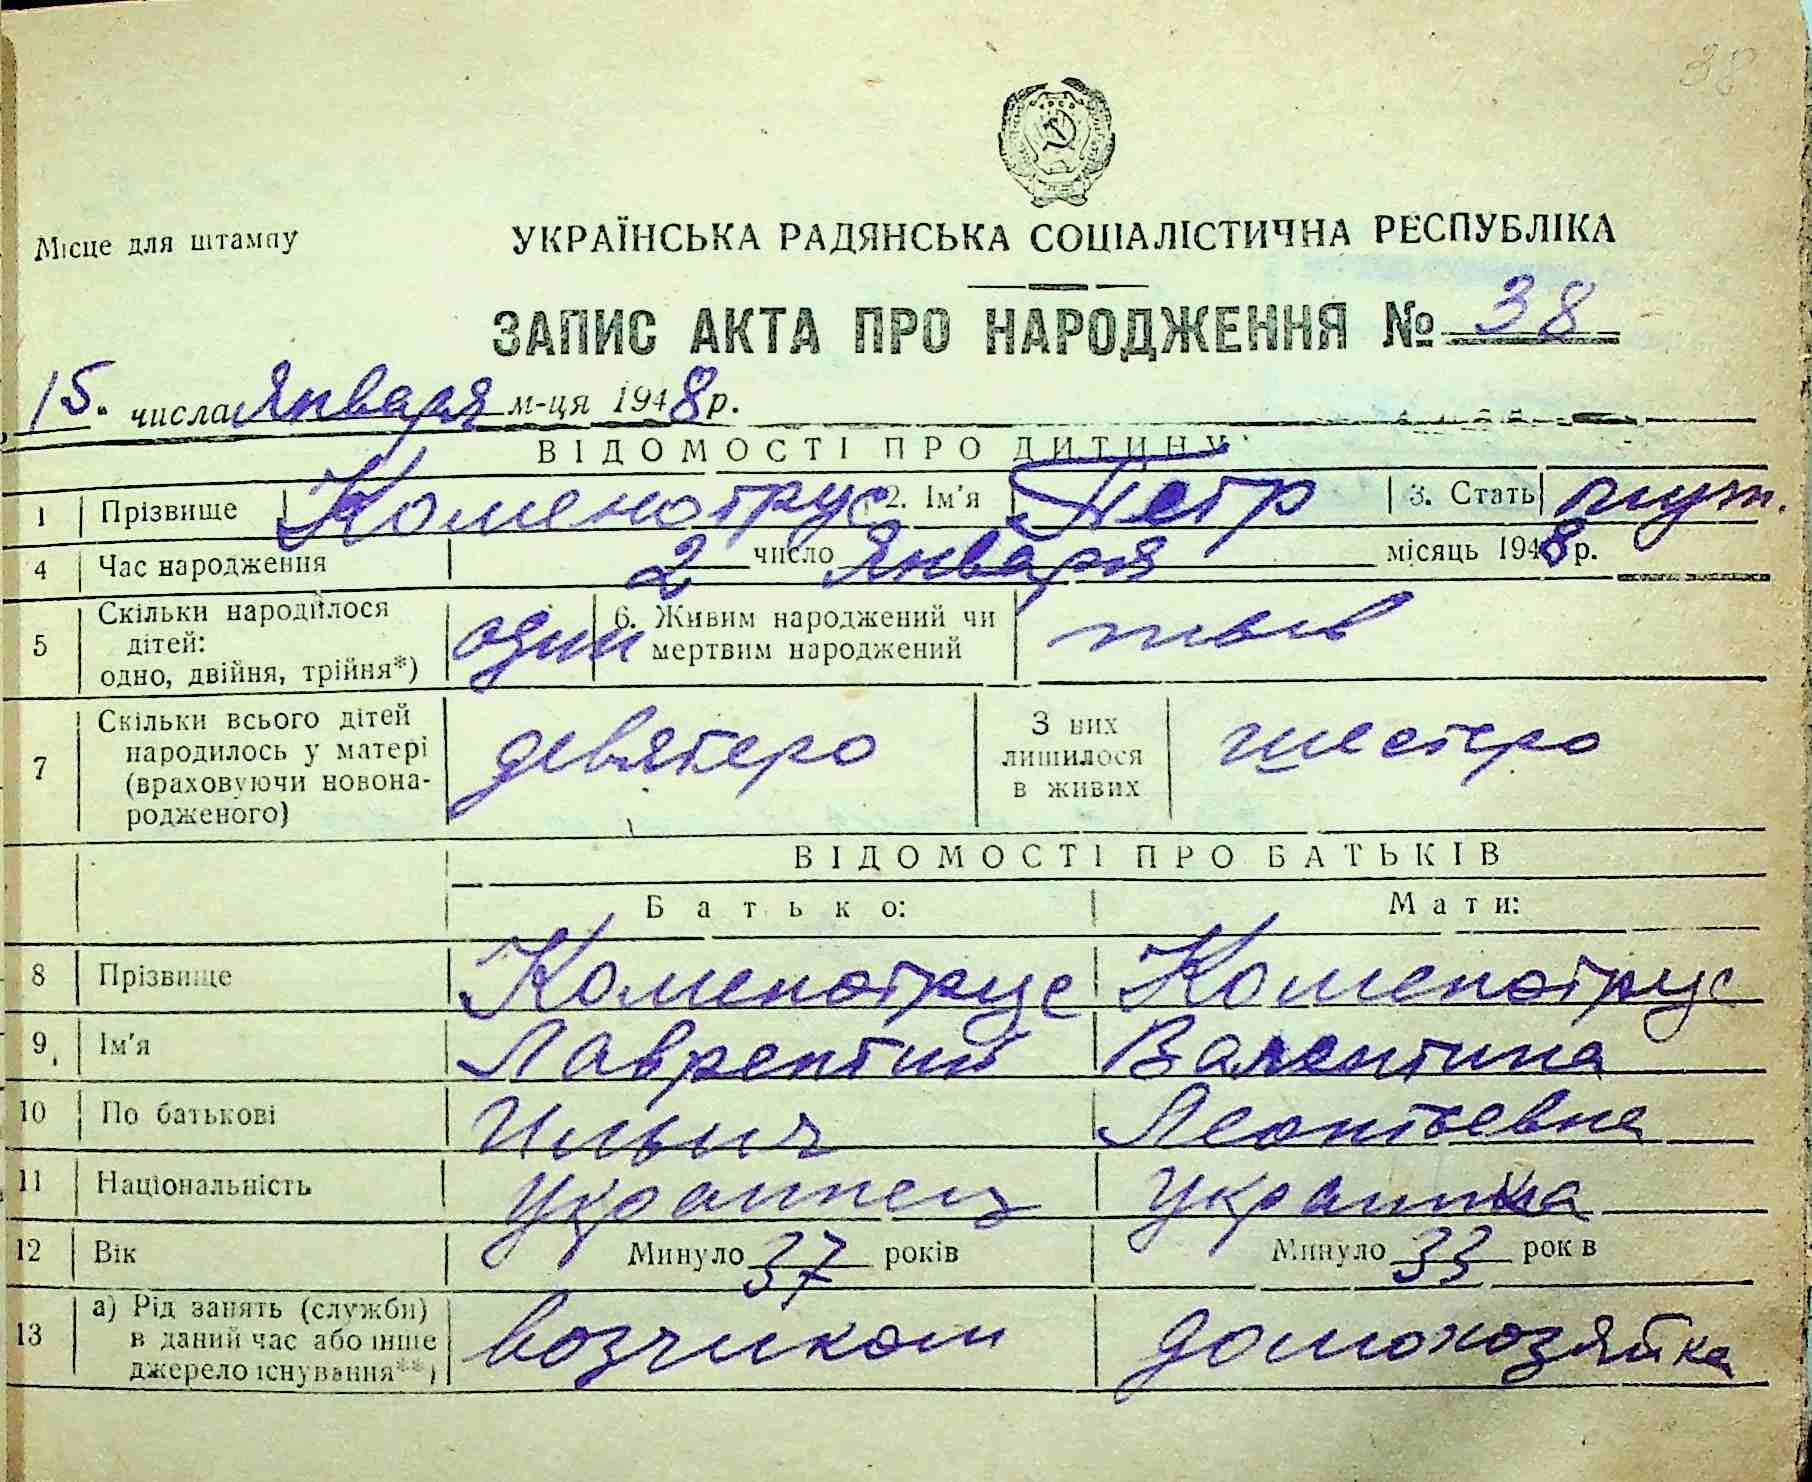 38
Місце для штампу
УКРАЇНСЬКА РАДЯНСЬКА СОЦІАЛІСТИЧНА РЕСПУБЛІКА
ЗАПИС АКТА ПРО НАРОДЖЕННЯ № 38
15. числа Января м-ця 1948 р.
ВІДОМОСТІ ПРО ДИТИНУ
1 Прізвище Коменотрус 2. Ім'я Петр 3. Стать муж.
4 Час народження 2 число Января місяць 1948 р.
5 Скільки народилося дітей: одно, двійня, трійня*) один 6. Живим народжений чи мертвим народжений жив
7 Скільки всього дітей народилось у матері (враховуючи новонародженого) девятеро З них лишилося в живих шестеро
ВІДОМОСТІ ПРО БАТЬКІВ
Батько: Мати:
8 Прізвище Коменотрус Коменотрус
9 Ім'я Лаврентий Валентина
10 По батькові Ильич Леонтьевна
11 Національність Украинец Украинка
12 Вік Минуло 37 років Минуло 33 рок в
13 а) Рід занять (служби) в даний час або інше джерело існування**) возчиком домохозяйка